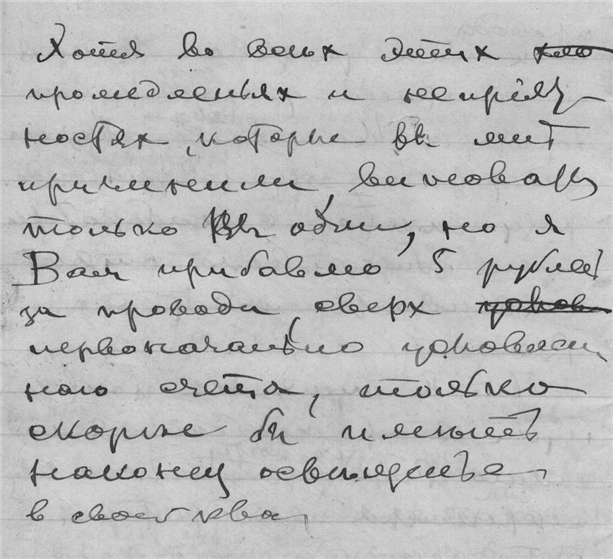 Хотя во всех этих
промедленьях и неприят-
ностях, которые вы мне
причинили, виноваты
только Вы одни, но я
Вам прибавлю 5 рублей
за провода сверх услов
первоначально условлен-
ного счета, только
скорее бы иметь
наконец освещенье
в